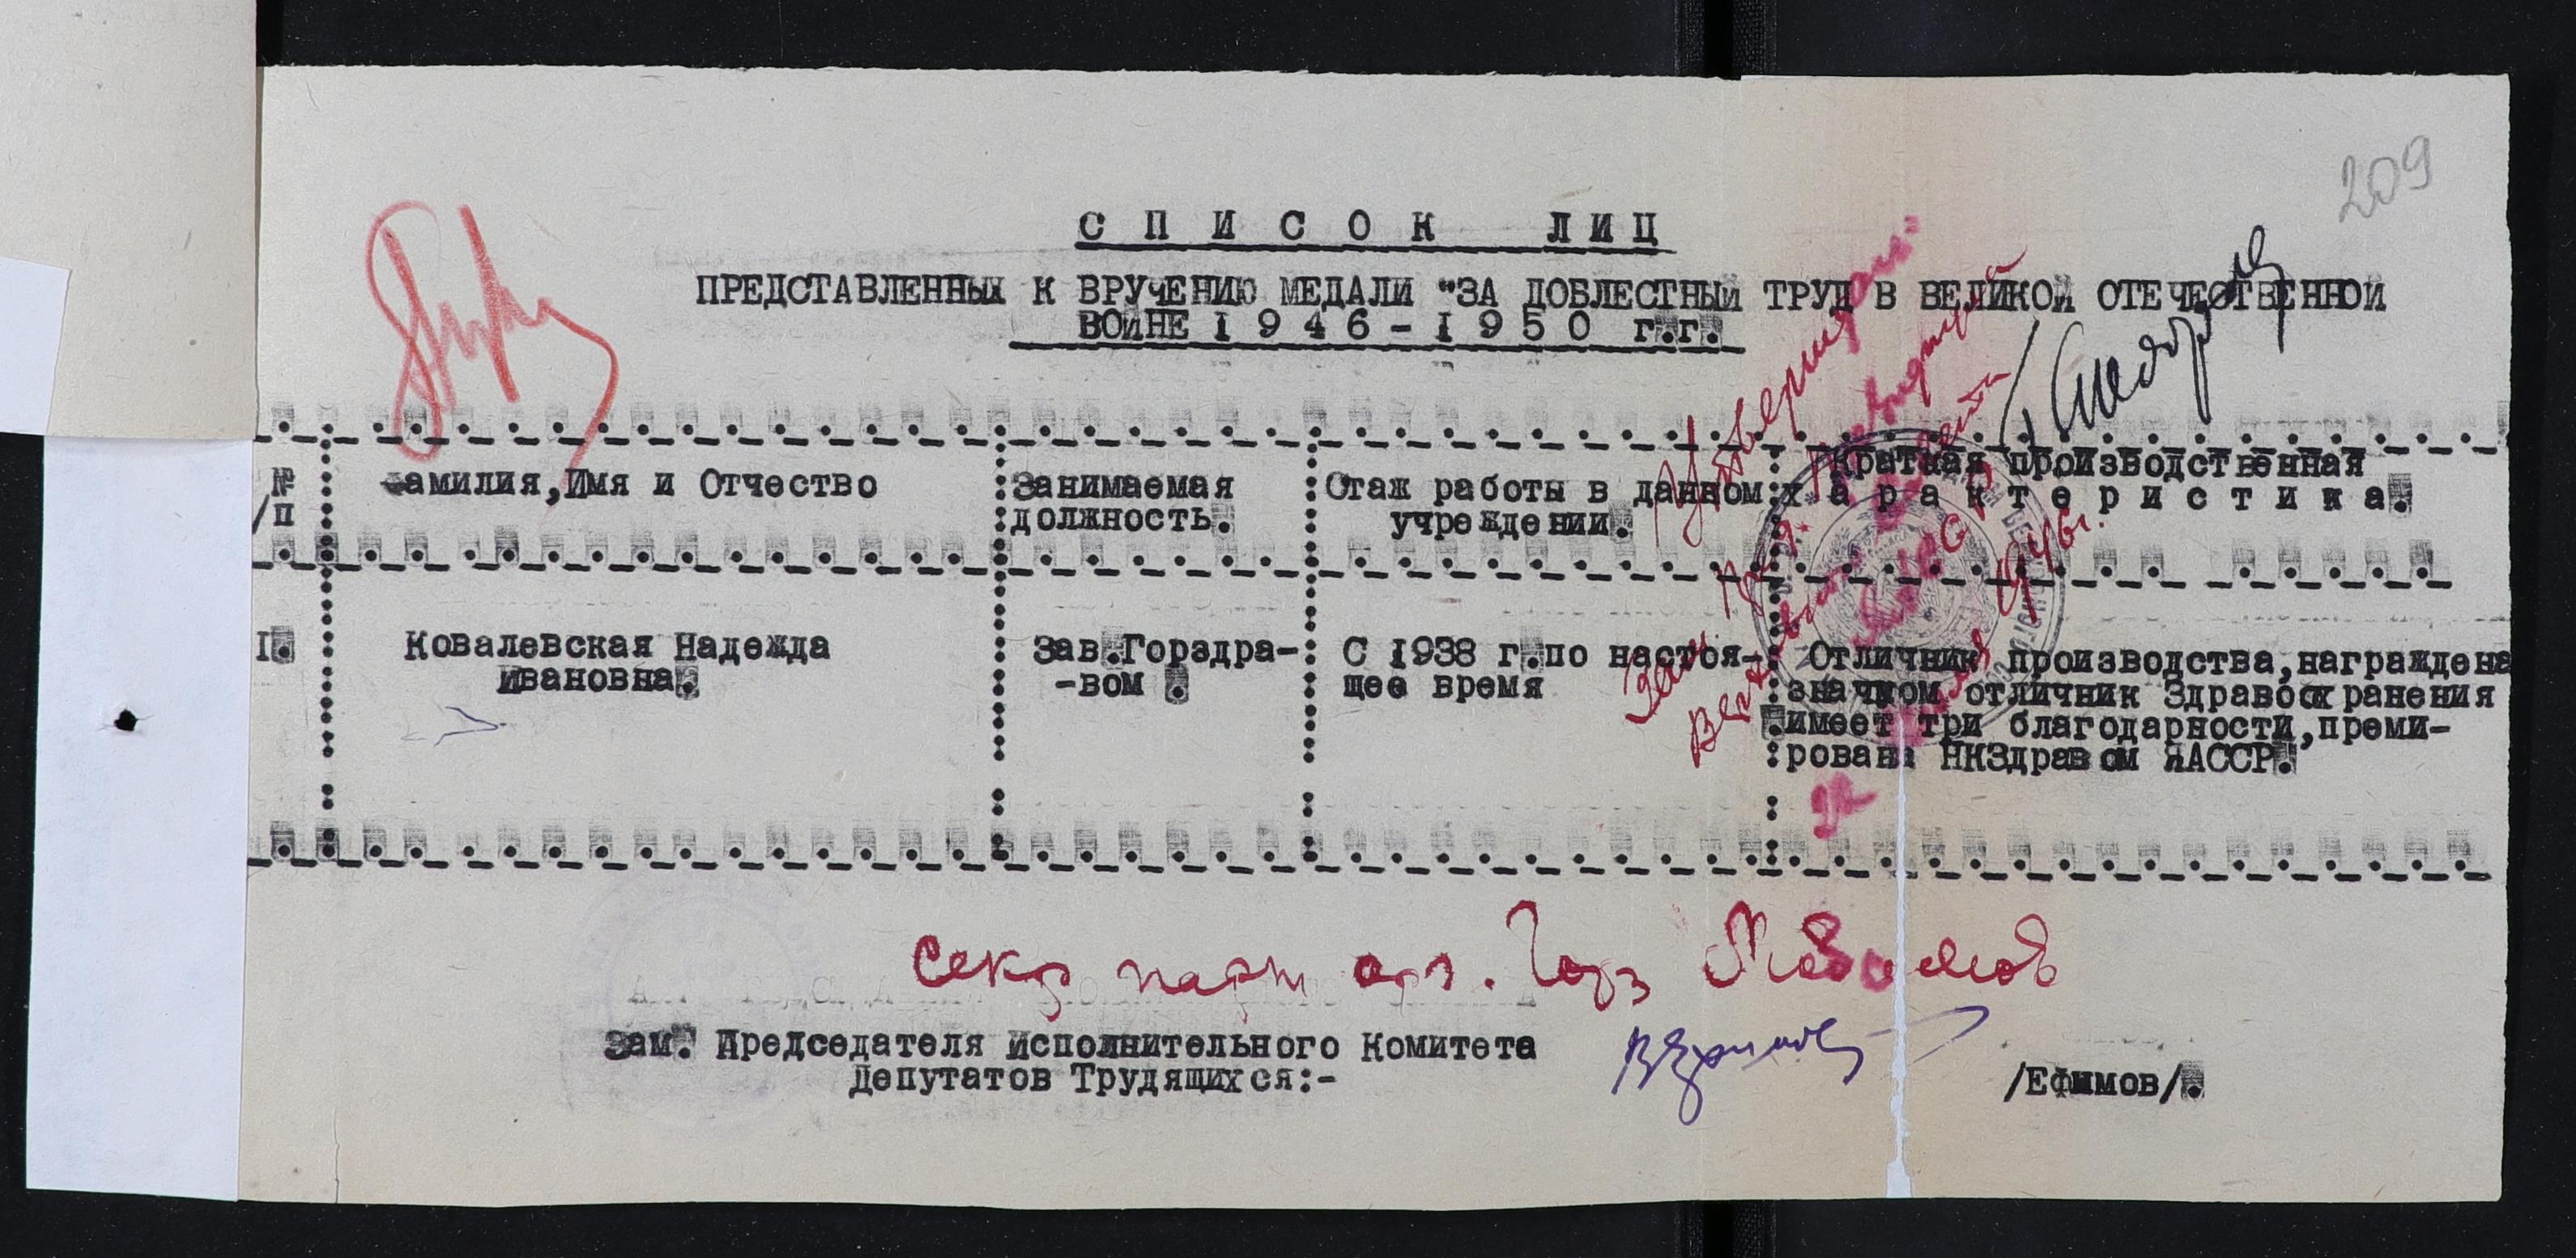 209
СПИСОК ЛИЦ
ПРЕДСТАВЛЕННЫХ К ВРУЧЕНИЮ МЕДАЛИ "ЗА ДОБЛЕСТНЫЙ ТРУД В ВЕЛИКОЙ ОТЕЧЕСТВЕННОЙ
ВОЙНЕ 1946-1950 г.г.
№
/п
Фамилия, Имя и Отчество
Занимаемая
должность.
Стаж работы в данном
учреждении.
Краткая производственная
характеристика.
I.
Ковалевская Надежда
Ивановна.
Зав.Горздра-
-вом .
С 1938 г.по настоя-
щее время
Отличник производства, награждена
значком отличник Здравоохранения
.имеет три благодарности, преми-
рована НКЗдравом ЯАССР.
Утверждаю:
Зам. През.
Верховного
946г.
Секр парт орг. Горз
Зам. Председателя Исполнительного Комитета
Депутатов Трудящихся:-
/Ефимов/.